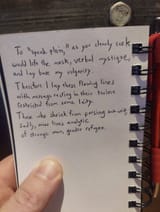 To "speak plain," as you clearly seek
would lift the mask, verbal mystique,
and lay bare my vulgarity.
Therefore I lay these flowing lines
with message resting in their
restricted from some
Those who shrink from parsing
Sadly, miss lines analytic
of strange man, gender refugee.